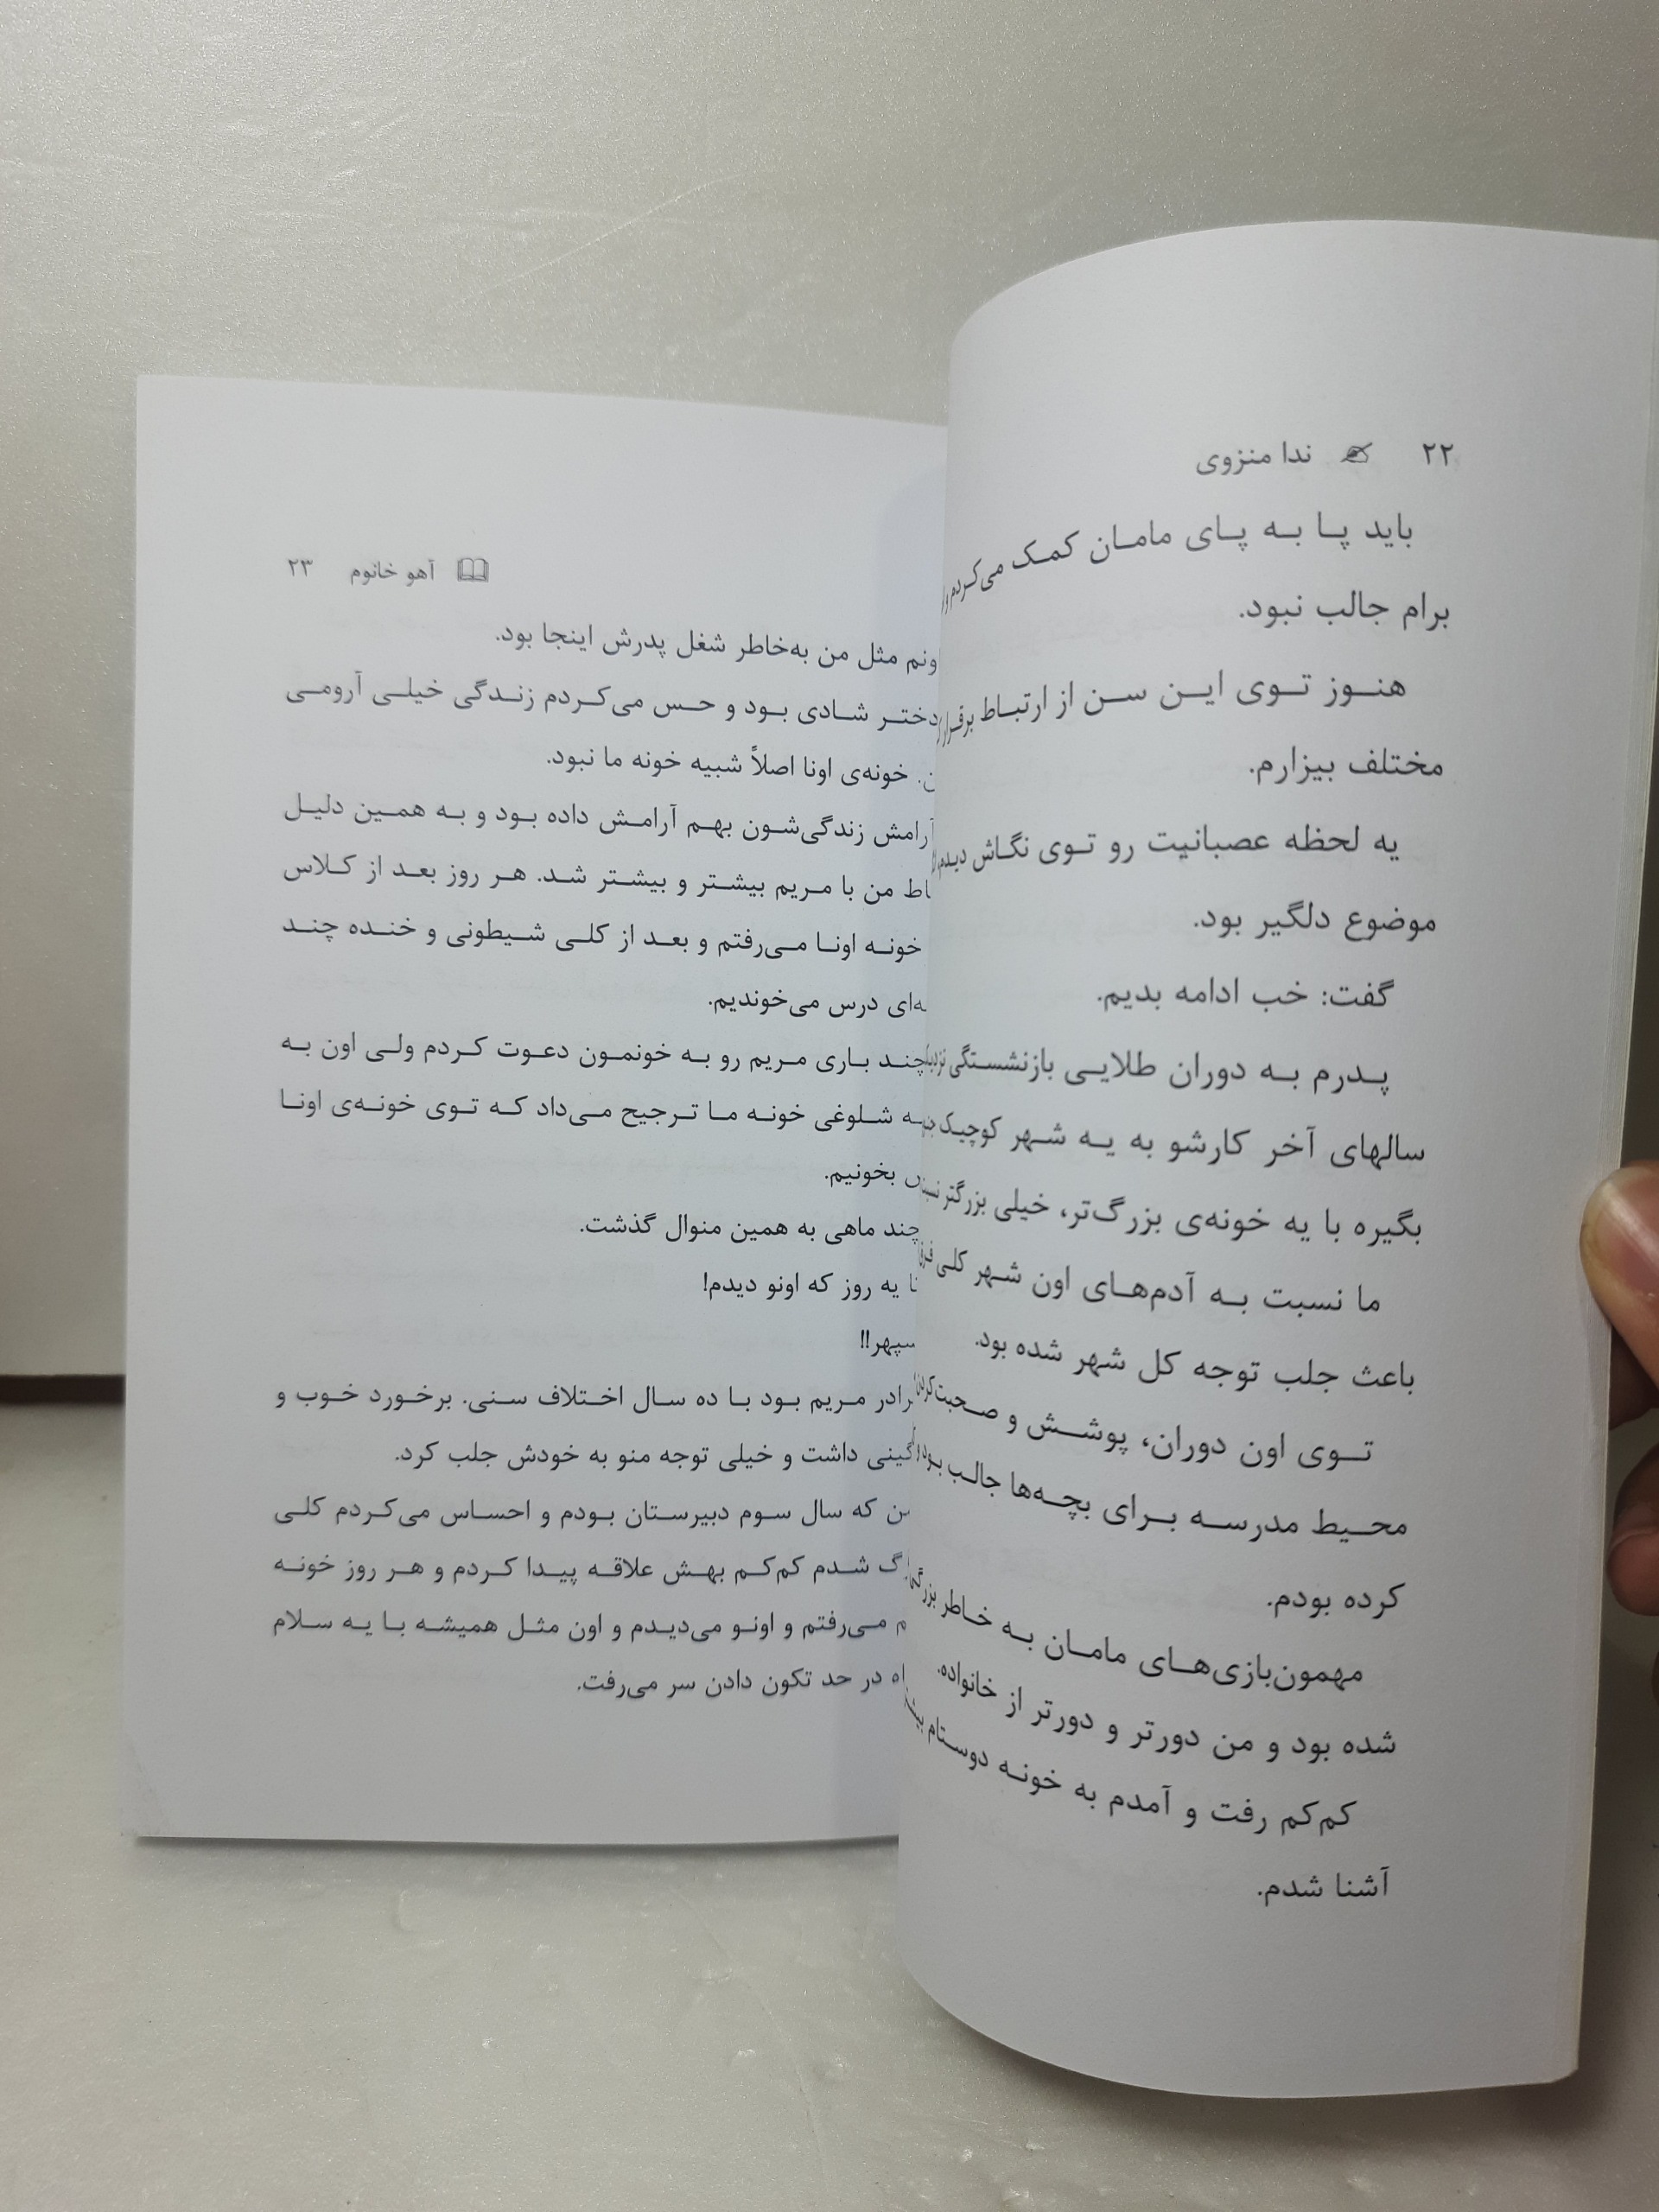 ۲۲ ندا منزوی
باید پا به پای مامان کمک می‌کردم
برام جالب نبود.
هنوز توی این سن از ارتباط
مختلف بیزارم.
یه لحظه عصبانیت رو توی نگاش دیدم
موضوع دلگیر بود.
گفت: خب ادامه بدیم.
پدرم به دوران طلایی بازنشستگی
سالهای آخر کارشو به یه شهر کوچیک
بگیره با یه خونه‌ی بزرگ‌تر، خیلی بزرگتر
ما نسبت به آدم‌های اون شهر کلی
باعث جلب توجه کل شهر شده بود.
توی اون دوران، پوشش و صحبت
محیط مدرسه برای بچه‌ها جالب بود
کرده بودم.
مهمون‌بازی‌های مامان به خاطر
شده بود و من دورتر و دورتر از خانواده.
کم‌کم رفت و آمدم به خونه دوستام
آشنا شدم.
آهو خانوم ۲۳
مثل من به‌خاطر شغل پدرش اینجا بود.
دختر شادی بود و حس می‌کردم زندگی خیلی آرومی
خونه‌ی اونا اصلاً شبیه خونه ما نبود.
آرامش زندگی‌شون بهم آرامش داده بود و به همین دلیل
من با مریم بیشتر و بیشتر شد. هر روز بعد از کلاس
خونه اونا می‌رفتم و بعد از کلی شیطونی و خنده چند
درس می‌خوندیم.
چند باری مریم رو به خونمون دعوت کردم ولی اون به
شلوغی خونه ما ترجیح می‌داد که توی خونه‌ی اونا
بخونیم.
چند ماهی به همین منوال گذشت.
تا یه روز که اونو دیدم!
سپهر!!
برادر مریم بود با ده سال اختلاف سنی. برخورد خوب و
داشت و خیلی توجه منو به خودش جلب کرد.
من که سال سوم دبیرستان بودم و احساس می‌کردم کلی
شدم کم‌کم بهش علاقه پیدا کردم و هر روز خونه
می‌رفتم و اونو می‌دیدم و اون مثل همیشه با یه سلام
در حد تکون دادن سر می‌رفت.